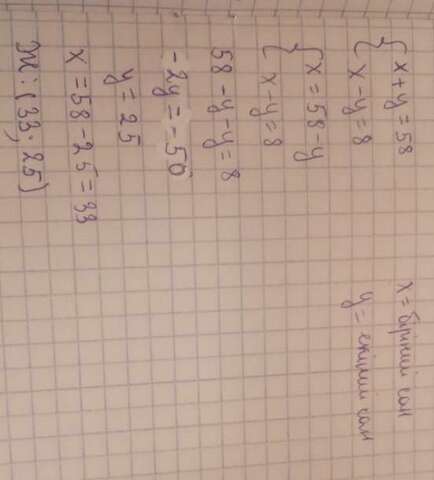 x + y = 58
x - y = 8
x = 58 - y
x - y = 8
58 - y - y = 8
- 2y = - 50
y = 25
x = 58 - 25 = 33
Ж: (33; 25)
x = бірінші сан
y = екінші сан